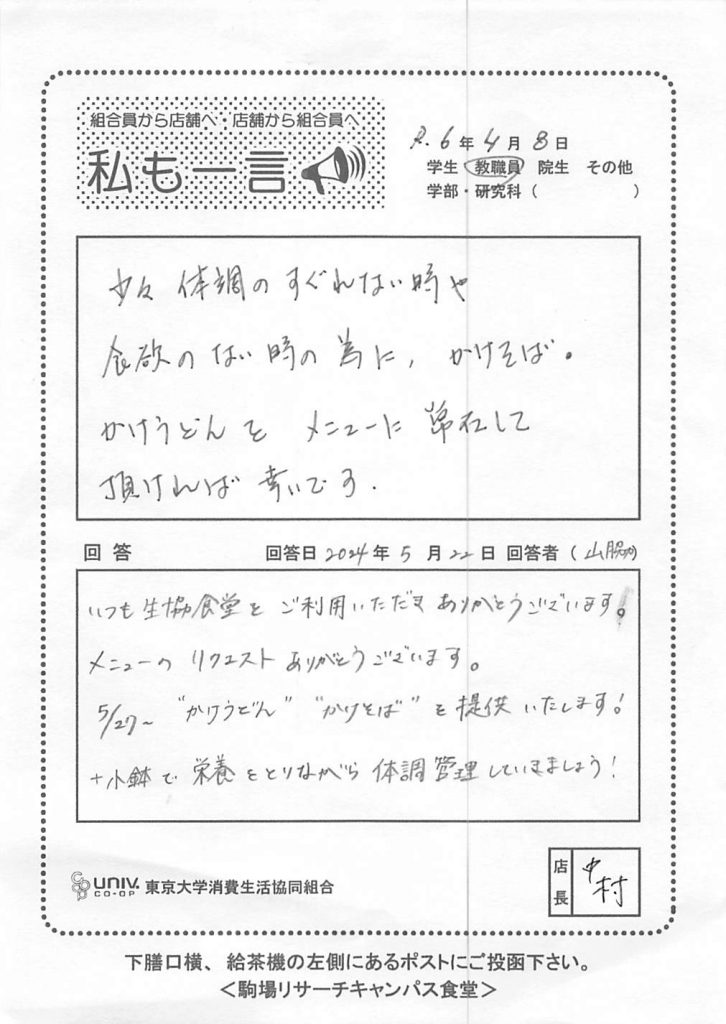 組合員から店舗へ・店舗から組合員へ
私も一言
R.6年4月8日
学生 教職員 院生 その他
学部・研究科（ ）
少々体調のすぐれない時や
食欲のない時の為に、かけそば・
かけうどんをメニューに常在して
頂ければ幸いです.
回答 回答日2024年5月22日 回答者（山脇）
いつも生協食堂をご利用いただきありがとうございます。
メニューのリクエストありがとうございます。
5/27〜 "かけうどん" "かけそば" を提供いたします!
+小鉢で栄養をとりながら体調管理していきましょう!
UNIV. CO-OP 東京大学消費生活協同組合
店長 中村
下膳口横、給茶機の左側にあるポストにご投函下さい。
＜駒場リサーチキャンパス食堂＞